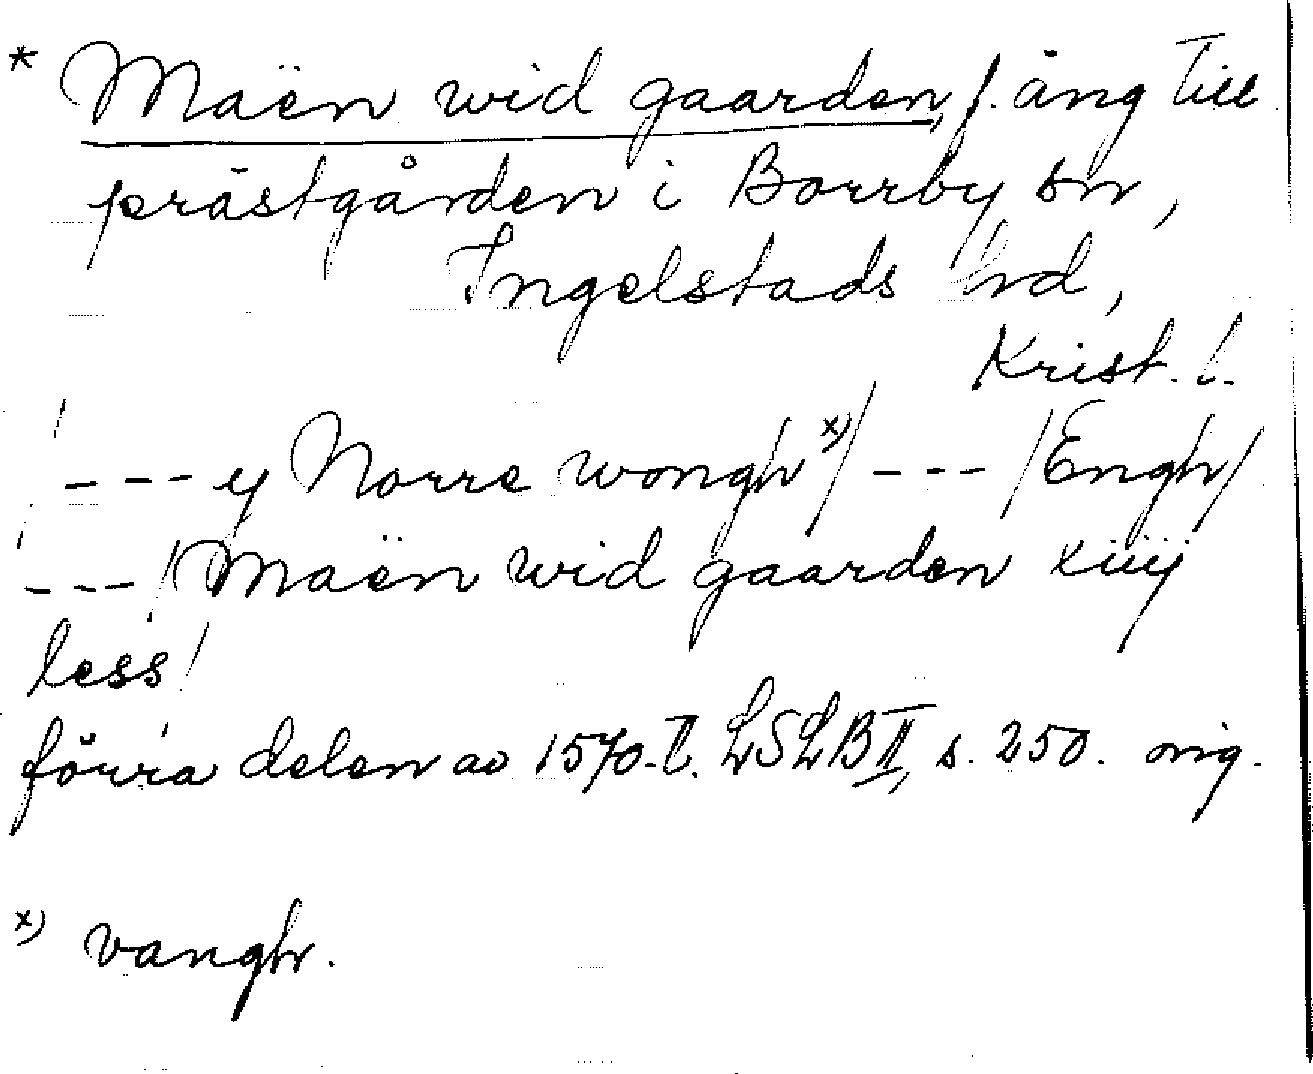 * Maën wid gaarden, f. äng till
prästgården i Borrby sn,
Ingelstads hd,
Krist. l.
/ - - - y Norre wongh x) / - - - / Engh /
- - - / Maën wid gaarden xiiij
less /
förra delen av 1570-t. LSLB II, s. 250. orig.
x) vangh.